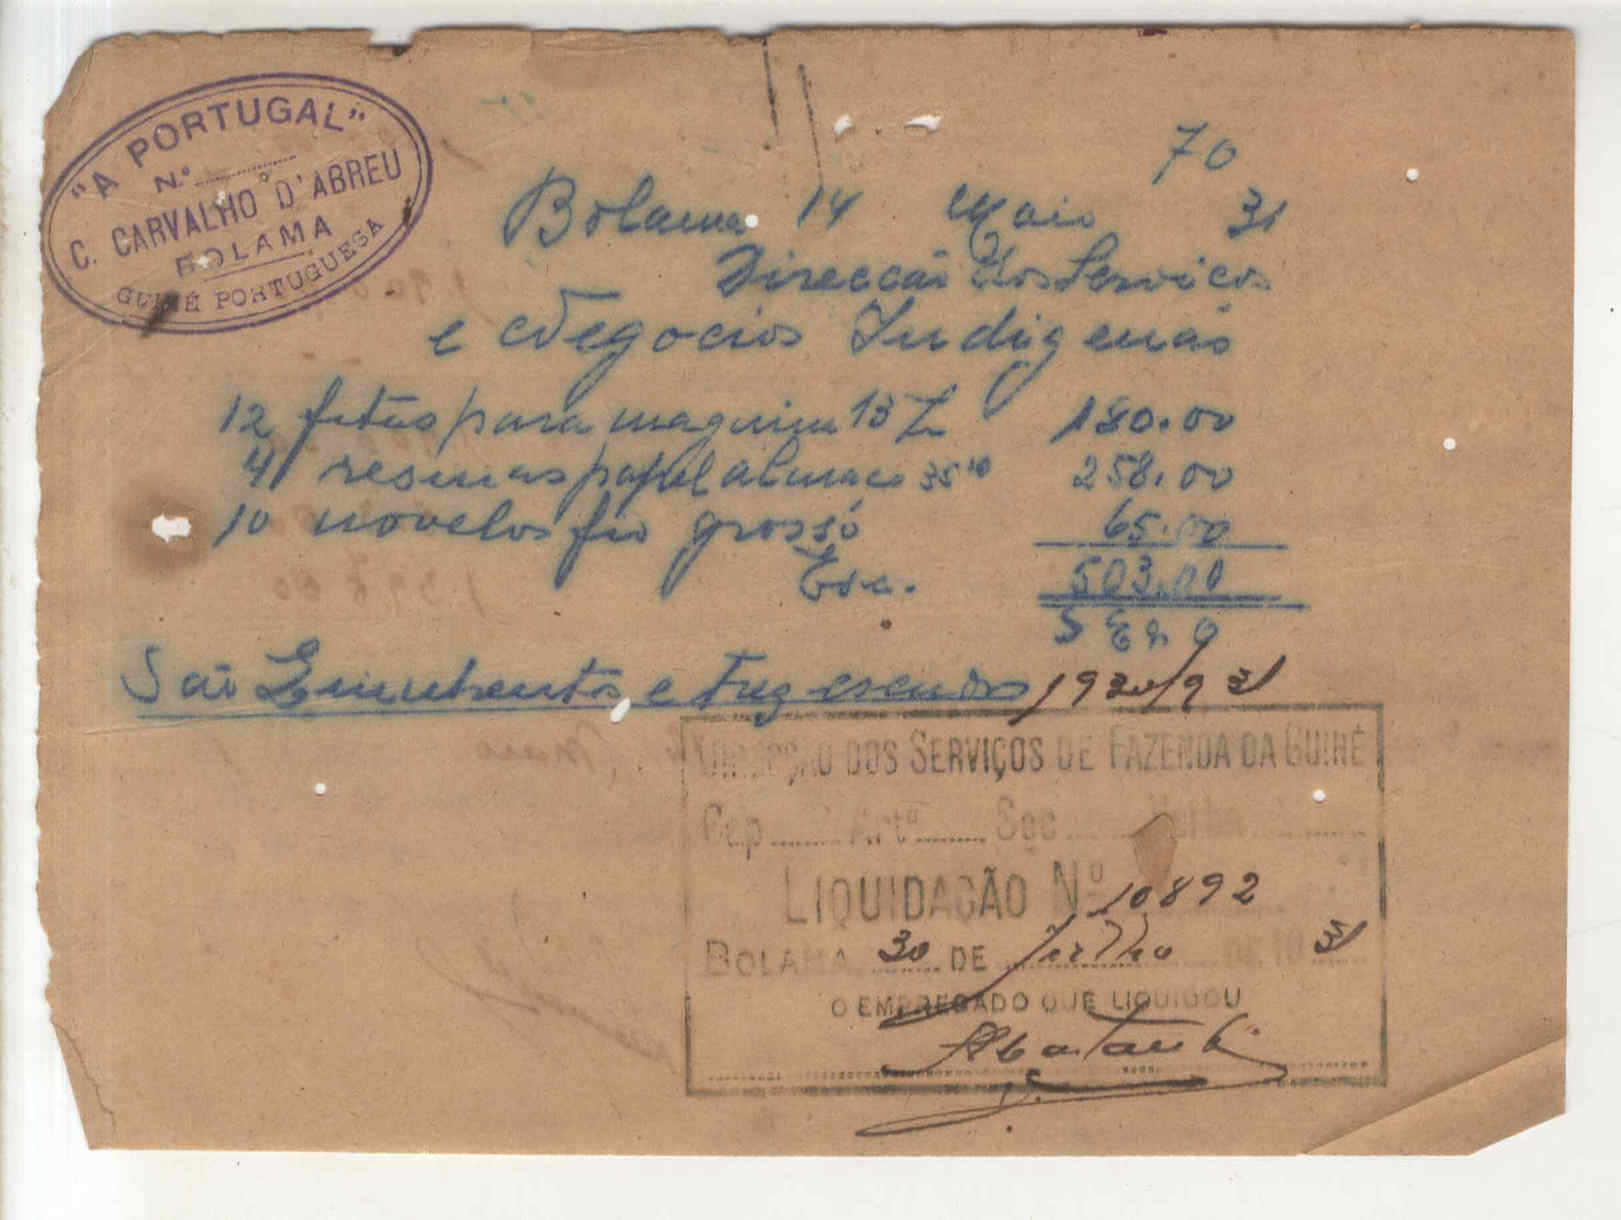 "A PORTUGAL"
N.º
C. CARVALHO D'ABREU
BOLAMA
GUINÉ PORTUGUESA
70
Bolama 14 Maio 31
Direcção dos Serviços
e Negocios Indigenas
12 fitas para maquina 15 180.00
resmas papel almaço 258.00
10 novelos fio grosso 65.00
Esc. 503.00
S E & O
São Quinhentos e trez escudos 1930/931
DIRECÇÃO DOS SERVIÇOS DE FAZENDA DA GUINÉ
Cap. Artº Sec. Verba
LIQUIDAÇÃO Nº 10892
BOLAMA 30 DE Julho DE 1931
O EMPREGADO QUE LIQUIDOU